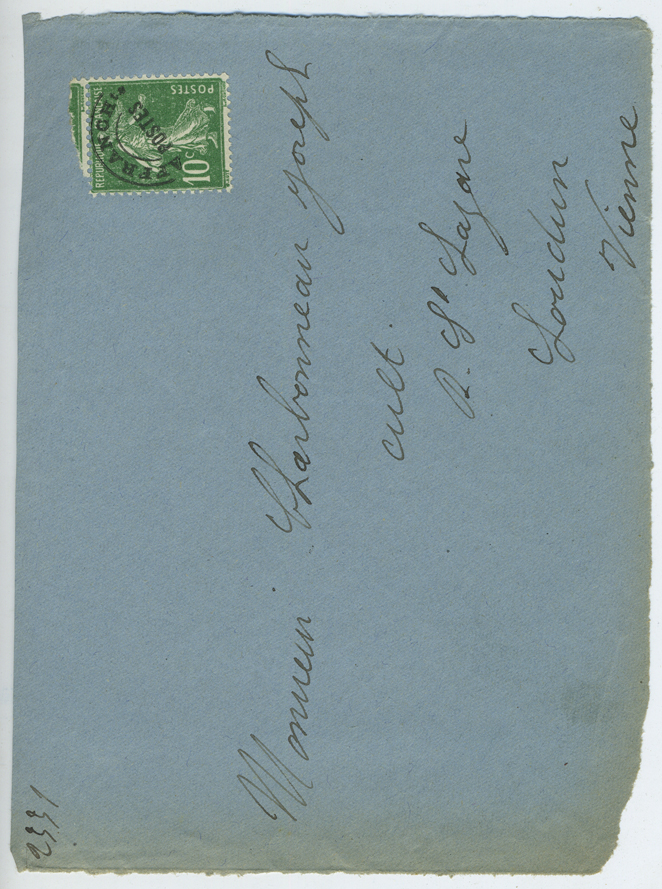 RÉPUBLIQUE FRANÇAISE
POSTES
AFFRANCHts
POSTES
10c
Monsieur Charbonneau Joseph
cult.
R. St Lazare
Loudun
Vienne